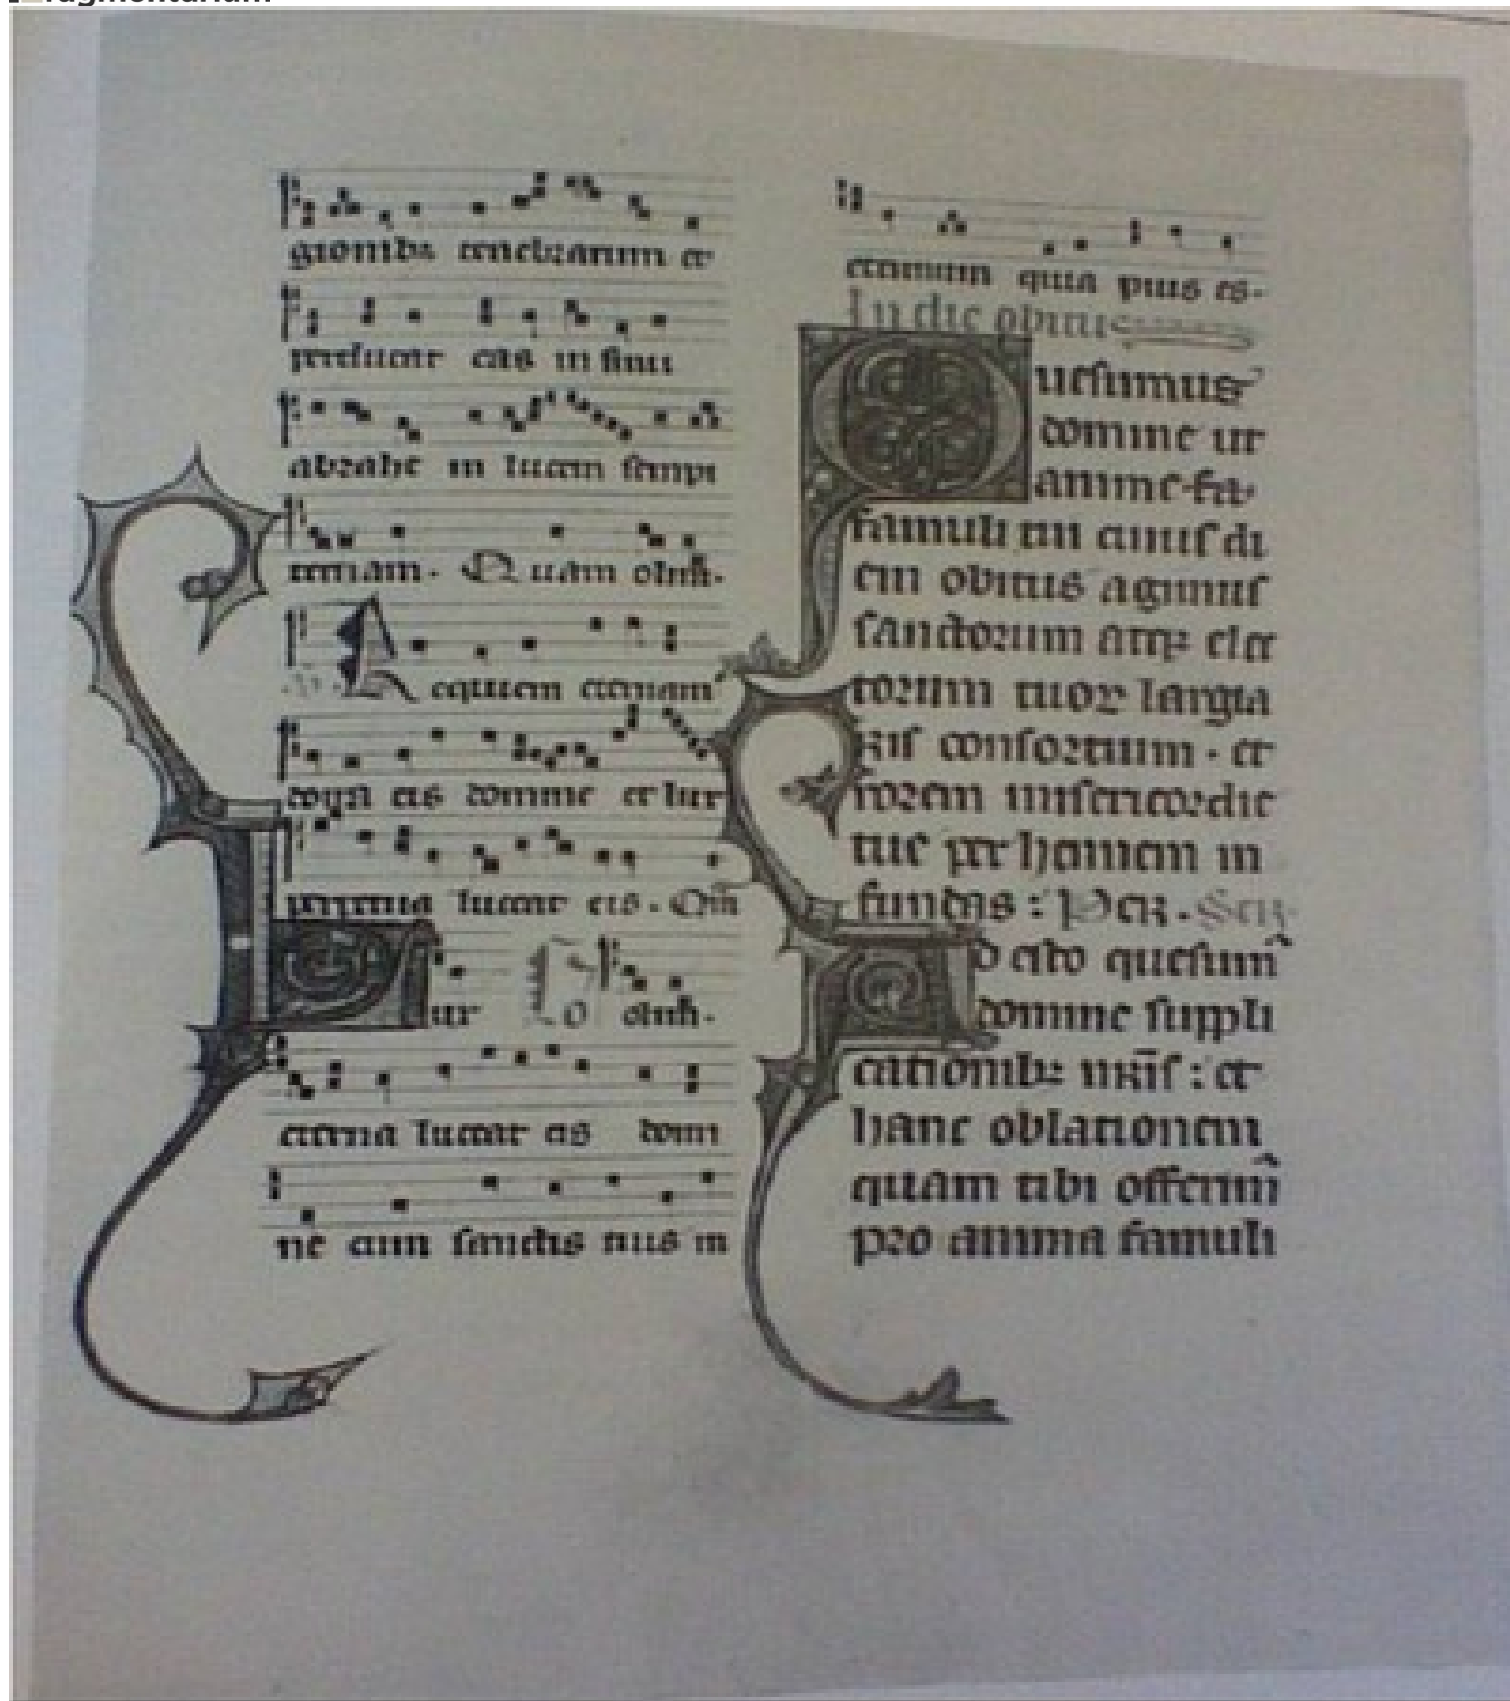 gionibꝫ tenebrarum et
perducat eas in sinu
abrahe in lucem sempi
ternam. Quam olim.
Requiem eternam
dona eis domine et lux
perpetua luceat eis. Qm̄
Lux Co olim.
eterna luceat eis domi
ne cum sanctis tuis in
eternum quia pius es.
In die obitus
Quesumus
domine ut
anime fa
famuli tui cuius di
em obitus agimus
sanctorum atqꝫ elec
torum tuoꝝ largia
ris consortium. et
rorem misericordie
tue perhennem in
fundas: Per. Secr.
Adesto quesum̄
domine suppli
cationibꝫ nr̄is: et
hanc oblationem
quam tibi offerim̄
pro anima famuli